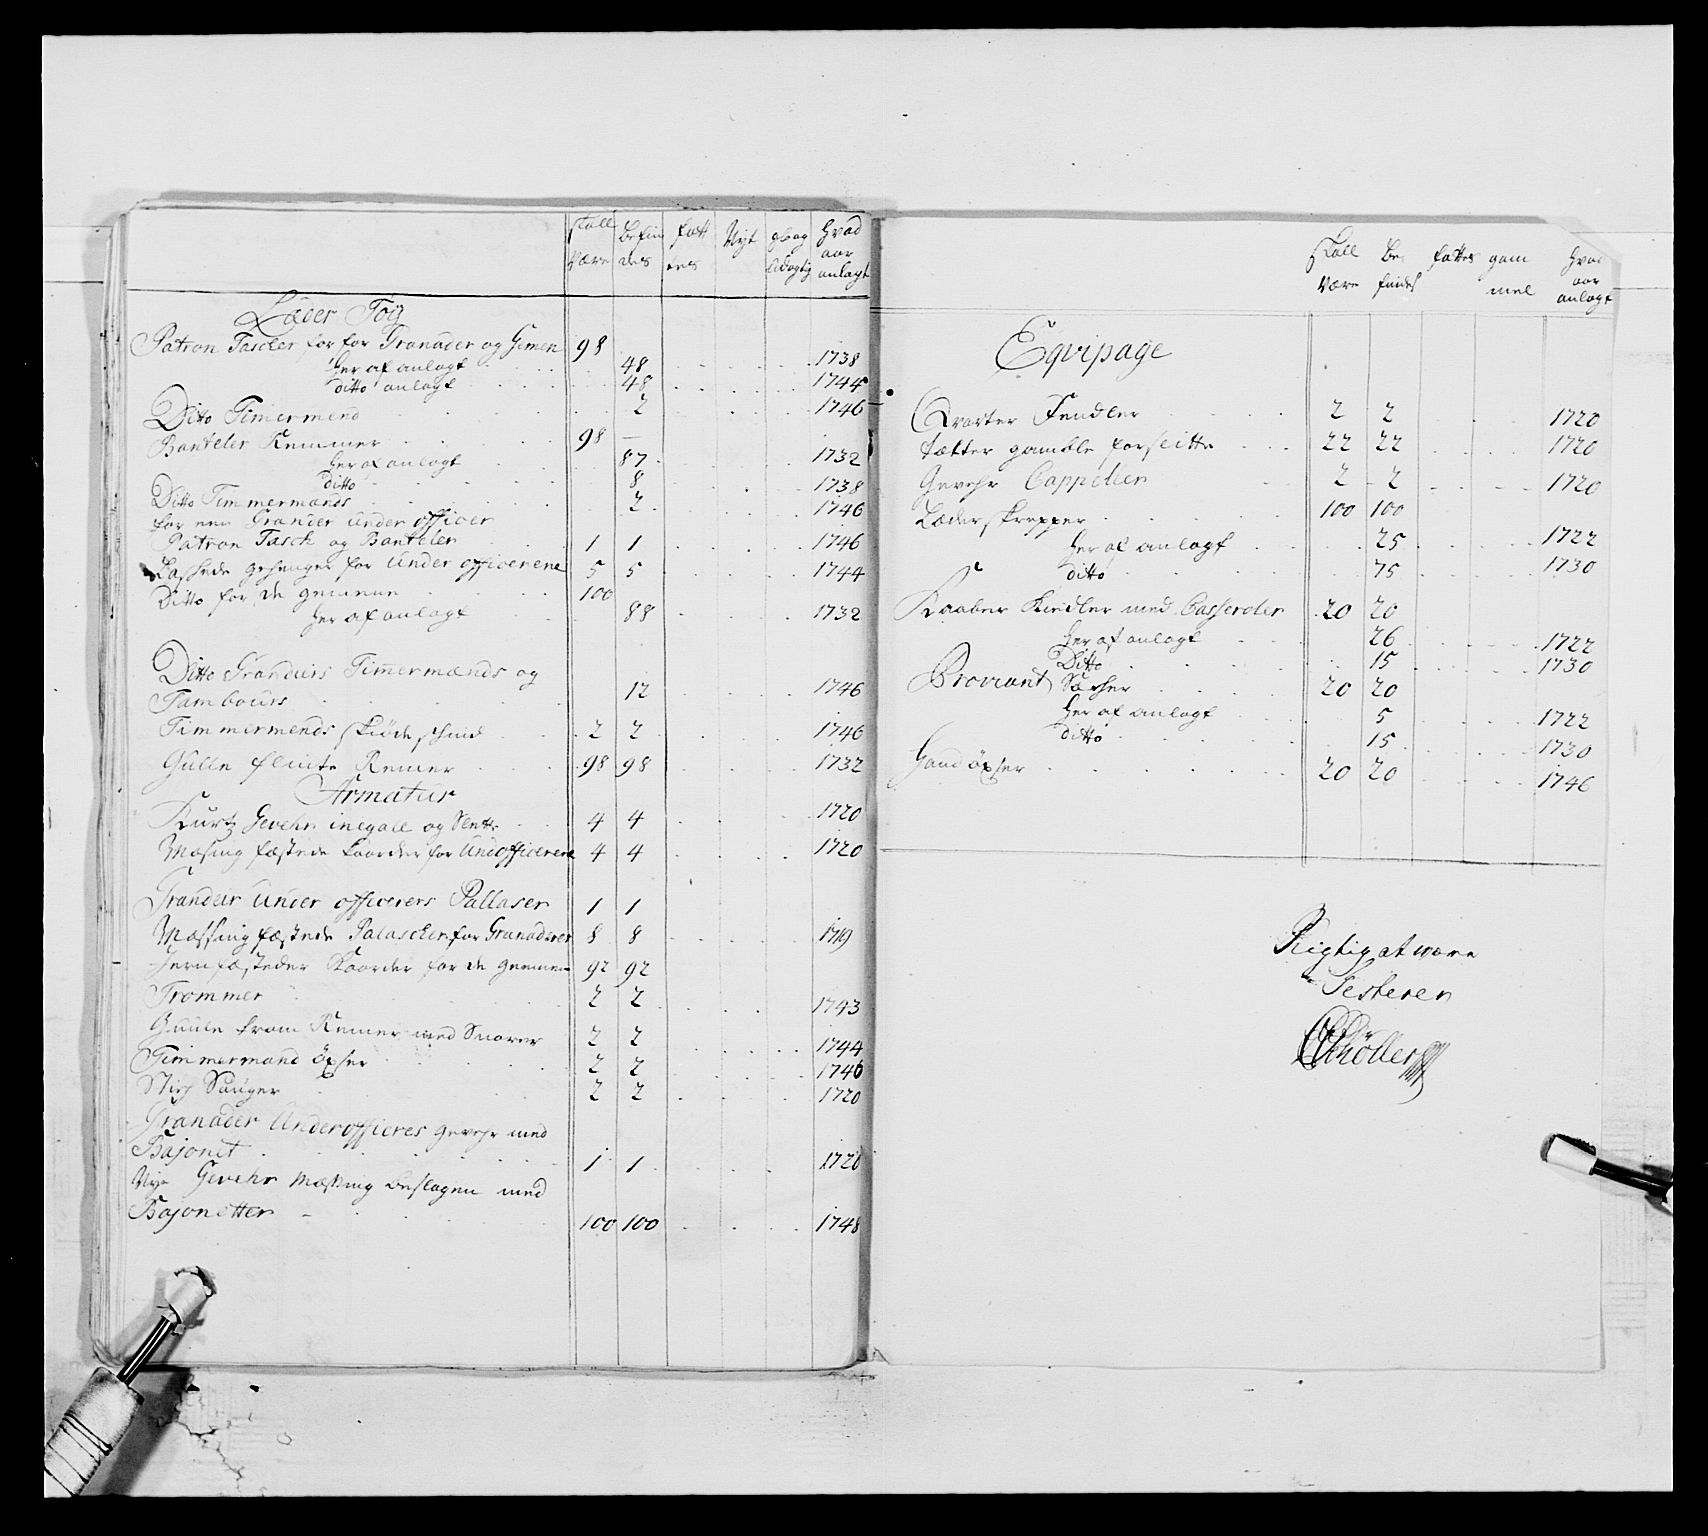 skall være | befin des | fatt tes | Nyt | ubrug | hvad aar anlagt
Læder Töÿ
Patron Tascher for for Granader og Gemen 98
her af anlagt 48 1738
ditto anlagt 48 1744
Ditto Timermend 2 1746
Banteler Remmer 98 —
her af anlagt 87 1732
ditto 8 1738
Ditto Timmermænds 2 1746
for een Granader under officer
Patron Tasch og Banteler 1 1 1746
gehenger for Under officerene 5 5 1744
Ditto for de gemene 100
her af anlagt 88 1732
Ditto Granderis Timmermænds og
Tambours 12 1746
Timmermends skiödschind 2 2 1746
Gulle flinte Remer 98 98 1732
Armatur
Kurtz Gevehr inegale og Slette 4 4 1720
Mæsing fæstede kaarder for Undofficerene 4 4 1720
Grandeir Under officerers Pallaser 1 1
Mæssing fæstede Palascher for Granaderer 8 8 1719
Jern fæsteder Kaarder for de gemene 92 92
Trommer 2 2 1743
Guule trom Remer med Snorer 2 2 1744
Timmermand öxser 2 2 1746
Stich Sauger 2 2 1720
Granader Underofficeres gevehr med
Bajonet 1 1 1720
Nye Gevehr Mæssing beslagen med
Bajonetter 100 100 1748
skall være | be findes | fattes | gam mel | hvad aar anlagt
Eqvipage
Qvarter Fendler 2 2 1720
tætter gamble forslitte 22 22 1720
Gevehr Cappeleer 2 2 1720
Læder skrepper 100 100
her af anlagt 25 1722
ditto 75 1730
Kaaber Kiedler med Casseroler 20 20
her af anlagt 26 1722
Ditto 15 1730
Proviant Sæcher 20 20
her af anlagt 5 1722
ditto 15 1730
Hand öxser 20 20 1746
Rigtig at være
Testerer
Schøller